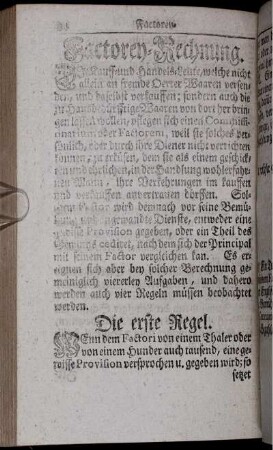 Factorey-
Factorey-Rechnung.
Kauff- und Handels-Leute, welche nicht
allein an fremde Oerter Waaren versen-
den, und daselbst verkauffen; sondern auch die
zu Handel dürfftige Waaren von dort her brin-
gen lassen wollen, pflegen sich einen Commissi-
onarium oder Factorem, weil sie solches per-
sönlich, oder durch ihre Diener nicht verrichten
können, zu erkiesen, dem sie als einem geschick-
ten und ehrlichen, in der Handlung wohlerfahr-
nen Mann, ihre Verkehrungen im kauffen
und verkauffen anvertrauen dörffen. Sol-
chem Factor wird dernach vor seine Bemü-
hung und angewandte Dienste, entweder eine
gewisse Provision gegeben, oder ein Theil des
Gewinns cediret, nach dem sich der Principal
mit seinem Factor verglichen kan. Es er-
eignen sich aber bey solcher Berechnung ge-
meiniglich viererley Aufgaben, und dahero
werden auch vier Regeln müssen beobachtet
werden.
Die erste Regel.
WEnn dem Factori von einem Thaler oder
von einem Hunder auch tausend, eine ge-
wisse Provision versprochen u. gegeben wird; so
setzet